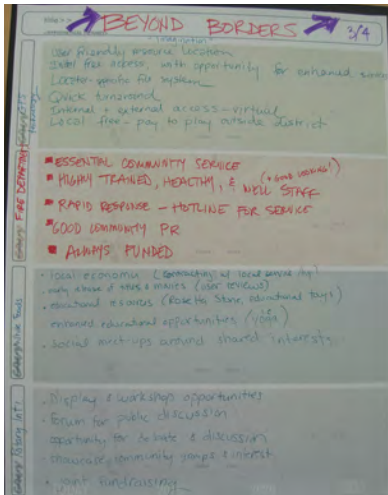 BEYOND BORDERS 3/4
User friendly resource location
free access, with opportunity for enhanced
Locator-specific file system
Quick turnaround
Internal + external access - virtual
Local free - pay to play outside district
FIRE DEPARTMENT
ESSENTIAL COMMUNITY SERVICE
HIGHLY TRAINED, HEALTHY, & WELL STAFF
(+ GOOD LOOKING!)
RAPID RESPONSE - HOTLINE FOR SERVICE
GOOD COMMUNITY PR
ALWAYS FUNDED
local economic (contracting w/ local
early (user reviews)
educational (Rosetta Stone, educational toys)
enhanced educational opportunities (yoga)
social meet-ups around shared interests
Rotary Int'l
Display & workshop opportunities
forum for public discussion
opportunity for debate & discussion
showcase community groups & interest
joint fundraising